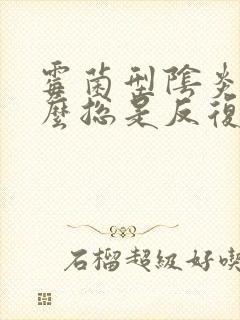 霉菌型陰炎
麼總是反復
石榴超級好喫